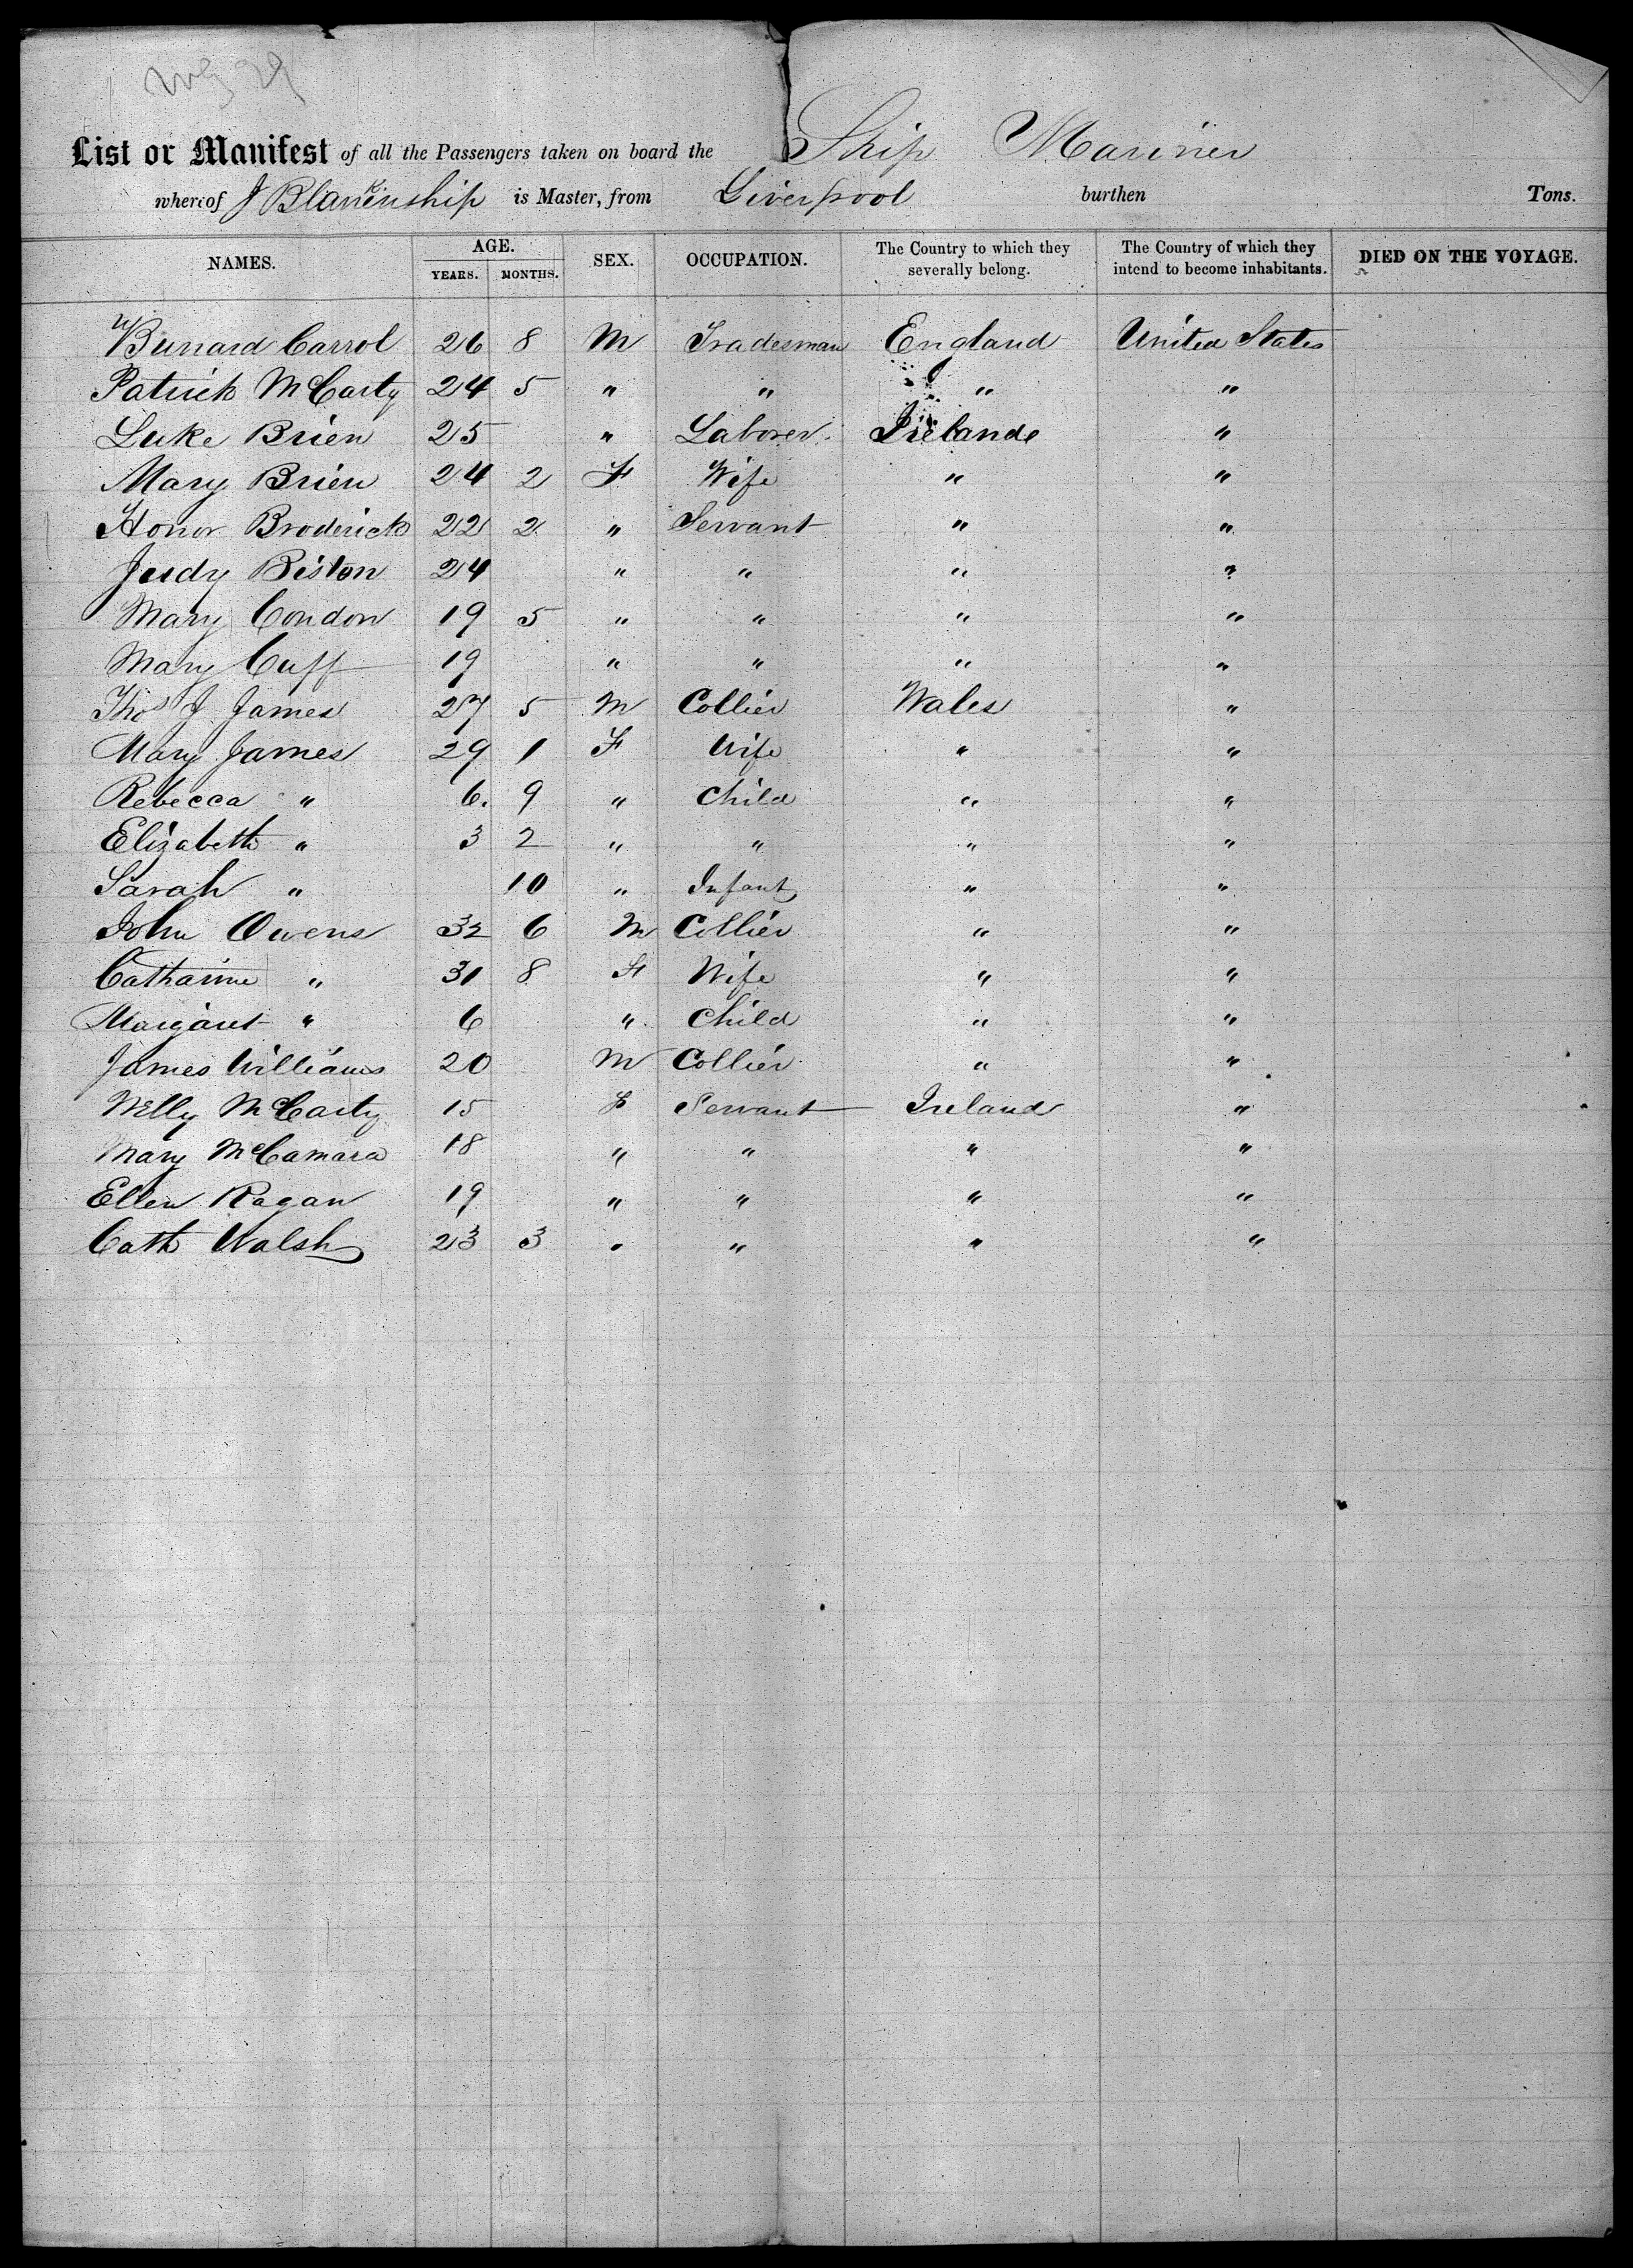 Aug 29
List or Manifest of all the Passengers taken on board the Ship Mariner
whereof J Blankenship is Master, from Liverpool burthen Tons.
NAMES. AGE. YEARS. MONTHS. SEX. OCCUPATION. The Country to which they severally belong. The Country of which they intend to become inhabitants. DIED ON THE VOYAGE.
Bunard Carrol 26 8 M Tradesman England United States
Patrick McCarty 24 5 " " " "
Luke Brien 25 " Laborer Ireland "
Mary Brien 24 2 F Wife " "
Honor Broderick 22 2 " Servant " "
Judy Biston 24 " " " "
Mary Condon 19 5 " " " "
Mary Cuff 19 " " " "
Thos J James 27 5 M Collier Wales "
Mary James 29 1 F Wife " "
Rebecca " 6. 9 " Child " "
Elizabeth " 3 2 " " " "
Sarah " 10 " Infant " "
John Owens 32 6 M Collier " "
Catharine " 31 8 F Wife " "
Margaret " 6 " Child " "
James Williams 20 M Collier " "
Nelly McCarty 15 F Servant Ireland "
Mary McCamara 18 " " " "
Ellen Ragan 19 " " " "
Cath Walsh 23 3 " " " "